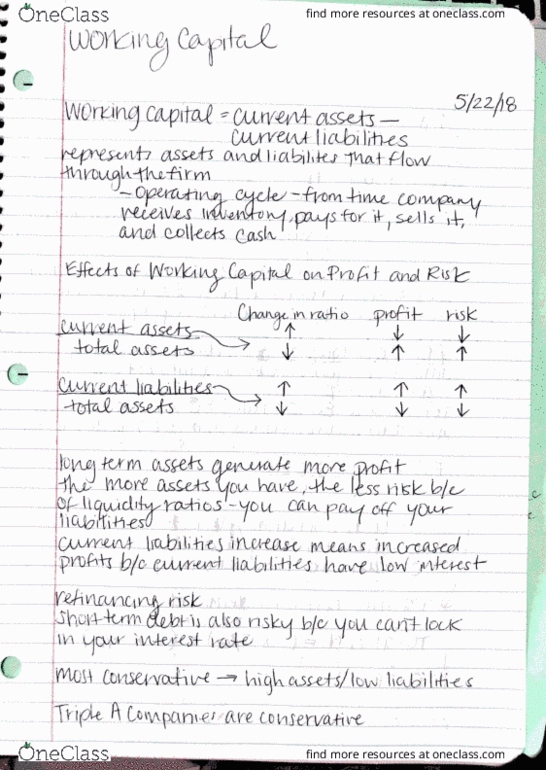 OneClass find more resources at oneclass.com
Working Capital
5/22/18
Working capital = current assets —
current liabilities
represents assets and liabilites that flow
through the firm
- Operating cycle - from time company
receives inventory, pays for it, sells it,
and collects cash
Effects of Working Capital on Profit and Risk
Change in ratio profit risk
current assets ↑ ↓ ↓
total assets ↓ ↑ ↑
current liabilities ↑ ↑ ↑
total assets ↓ ↓ ↓
long term assets generate more profit
the more assets you have, the less risk b/c
of liquidity ratios - you can pay off your
liabilities
current liabilities increase means increased
profits b/c current liabilities have low interest
refinancing risk
short term debt is also risky b/c you can't lock
in your interest rate
most conservative → high assets/low liabilities
Triple A Companies are conservative
OneClass find more resources at oneclass.com